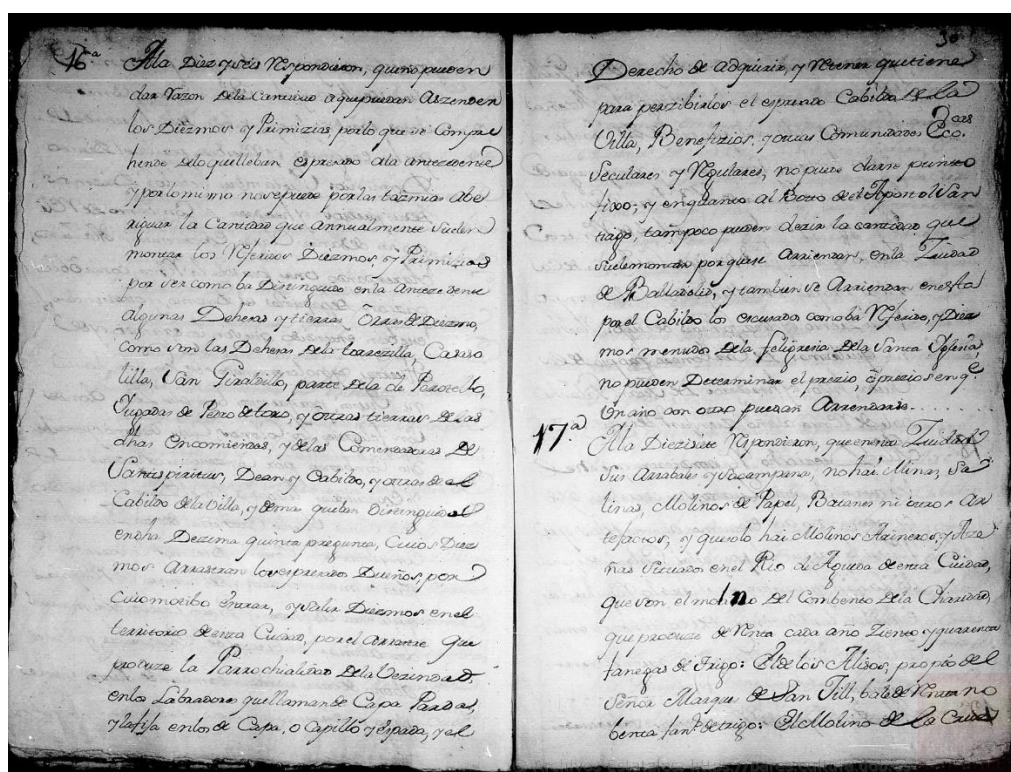 16ª
Ala Diez y seis Respondieron, que no pueden
dar Razon dela Cantidad aque puedan Aszender
los Diezmos y Primizias por lo que se Compre
hende delo que lleban espresado ala antecedente
y por lo mismo no se puede por las tazmias Abe
riguar la Cantidad que annualmente suelen
montar los Referidos Diezmos, y Primizias
por ser como ba Distinguido en la Antecedente
algunas Dehesas y tierras Diezmo,
como son las Dehesas dela Carazo
lilla, San Giraldillo, parte dela de
Jugadas de Pero de toro, y otras tierras de las
dhas Encomiendas, y delas Comendadoras de
Santispiritus, Dean y Cabildo, y otras de el
Cabildo dela Villa, y demas que ban Distinguidas
en dha Dezima quinta pregunta, Cuios Diez
mos Arrastran los espresados Dueños, por
cuio motibo entran, y salen Diezmos en el
territorio de esta Ciudad, por el Arrastre que
produze la Parrochialidad dela Vezindad
en los Labradores que llaman de Capa Pardas,
y la fija en los de Capa, o Capillo y espada, y el
30
Derecho de adquirir, y Retener que tiene
para perzibirlos el espresado Cabildo de la
Villa, Benefizios, y otras Comunidades
Seculares y Regulares, no puede darse punto
fixo; y en quanto al Boto de el Apostol San
tiago, tampoco pueden dezir la cantidad que
suele montar porque se Arriendan, en la Ziudad
de Balladolid, y tambien se Arriendan en esta
por el Cabildo los escusados como ba Referido, y Diez
mos menudos dela feligresia dela Santa Yglesia,
no pueden Determinar el prezio ó prezios en q.e
Un año con otro puedan Arrendarse.
17ª
Ala Diezisiete Respondieron, que en esta Ziudad
sus Arrabales y Socampana, no hai Minas, Sa
linas, Molinos de Papel, Batanes ni otros Ar
tefactos, y que solo hai Molinos Arineros, y Aze
ñas situados en el Rio de Agueda de esta Ciudad,
que son, el molino del Combento dela Charidad,
que produze de Renta cada año Ziento y quarenta
fanegas de trigo: El de los Alisos, propio del
Señor Marques de San Jill, bale de Renta no
benta fan.s de trigo: El Molino de la Cruz